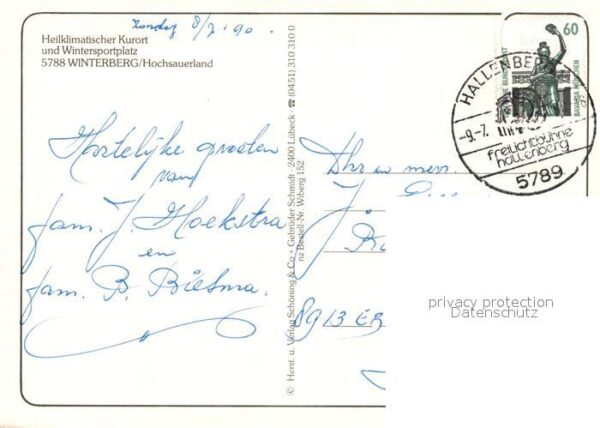 Zondag 8/7 90.
Heilklimatischer Kurort
und Wintersportplatz
5788 WINTERBERG/Hochsauerland
Hartelijke groeten
van
fam. J. Hoekstra
en
fam. B. Bielsma.
© Herst. u. Verlag Schöning & Co + Gebrüder Schmidt · 2400 Lübeck · ☎ (0451) 310 310 0
nz Bestell-Nr. Wiberg 152
60
DEUTSCHE BUNDESPOST
BAVARIA MÜNCHEN
HALLENBERG
-9.-7.
freilichtbühne
hallenberg
5789
Dhr en mevr.
J.
8913 ER
privacy protection
Datenschutz